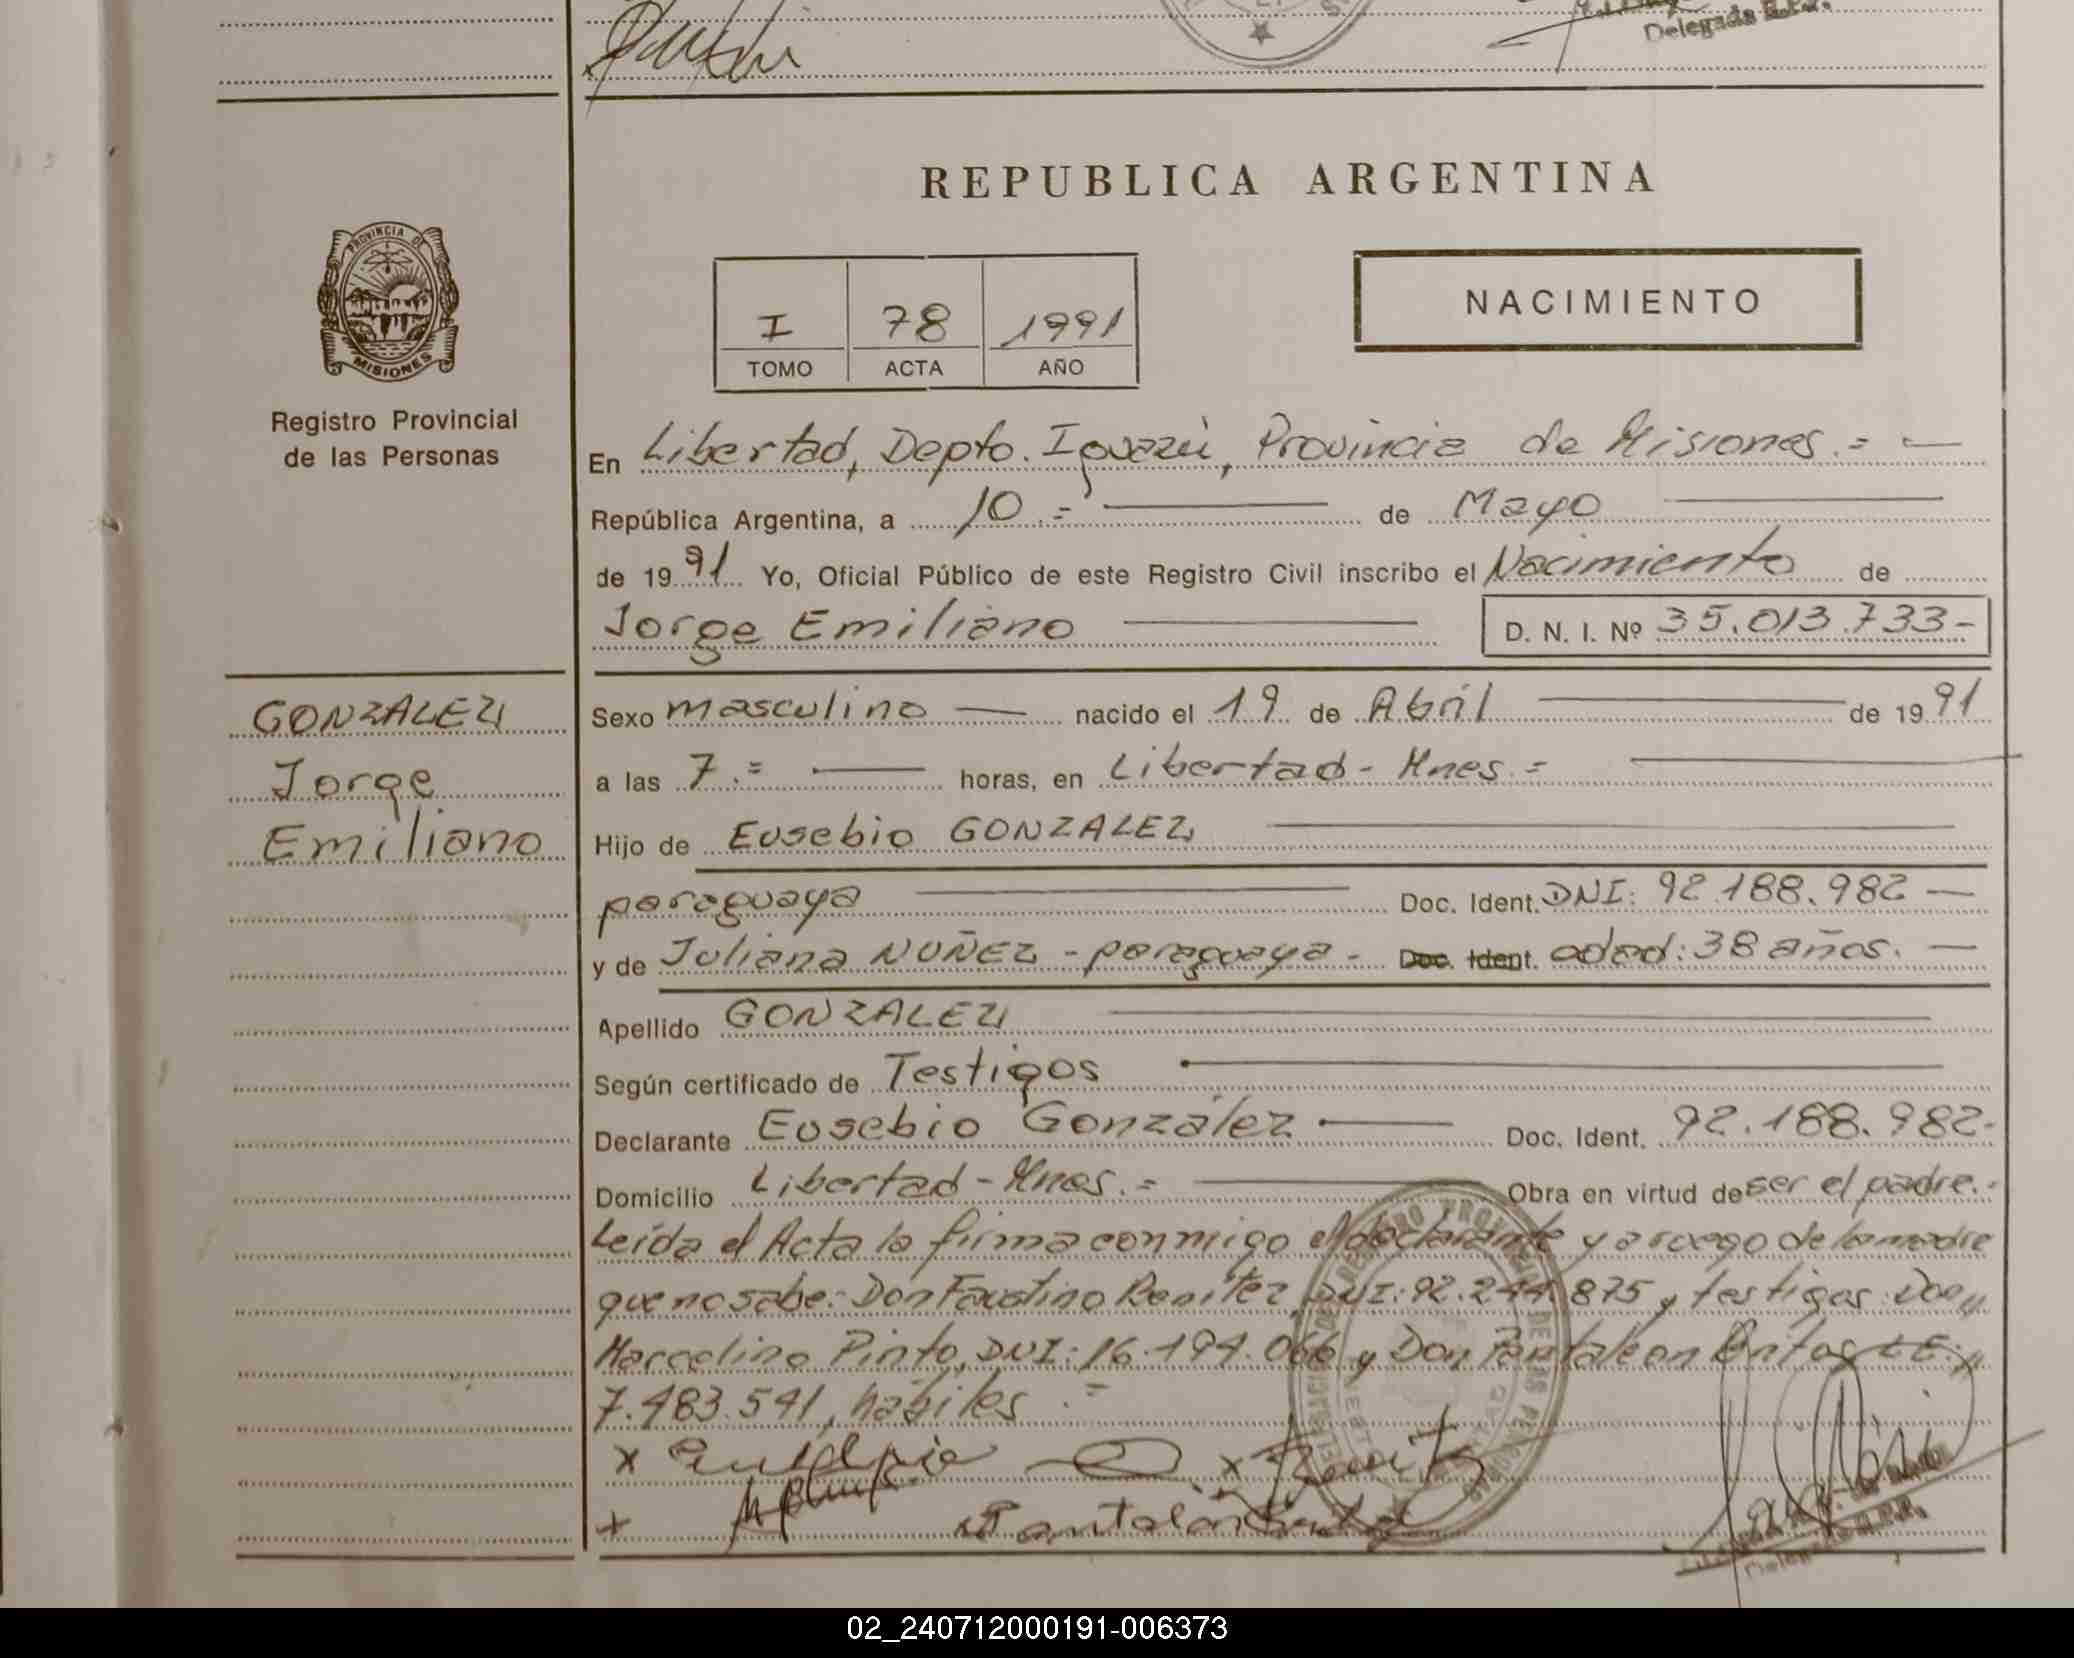 Delegada R.P.P.
REPUBLICA ARGENTINA
PROVINCIA DE
MISIONES
Registro Provincial
de las Personas
I 78 1991
TOMO ACTA AÑO
NACIMIENTO
En Libertad, Depto. Iguazú, Provincia de Misiones.=
República Argentina, a 10.= de Mayo
de 1991 Yo, Oficial Público de este Registro Civil inscribo el Nacimiento de
Jorge Emiliano D. N. I. Nº 35.013.733-
GONZALEZ
Jorge
Emiliano
Sexo masculino nacido el 19 de Abril de 1991
a las 7.= horas, en Libertad - Mnes.=
Hijo de Eusebio GONZALEZ
paraguaya Doc. Ident. DNI: 92.188.982
y de Juliana NUÑEZ - paraguaya - Doc. Ident. edad: 38 años.
Apellido GONZALEZ
Según certificado de Testigos
Declarante Eusebio González Doc. Ident. 92.188.982-
Domicilio Libertad - Mnes.= Obra en virtud de ser el padre.-
Leída el Acta la firma conmigo el declarante y a ruego de la madre
que no sabe: Don Faustino Benítez, DNI: 92.244.875 y testigos: Don
Marcelino Pinto, DNI: 16.194.066 y Don Pantaleon L E:
7.483.541, hábiles.=
02_240712000191-006373